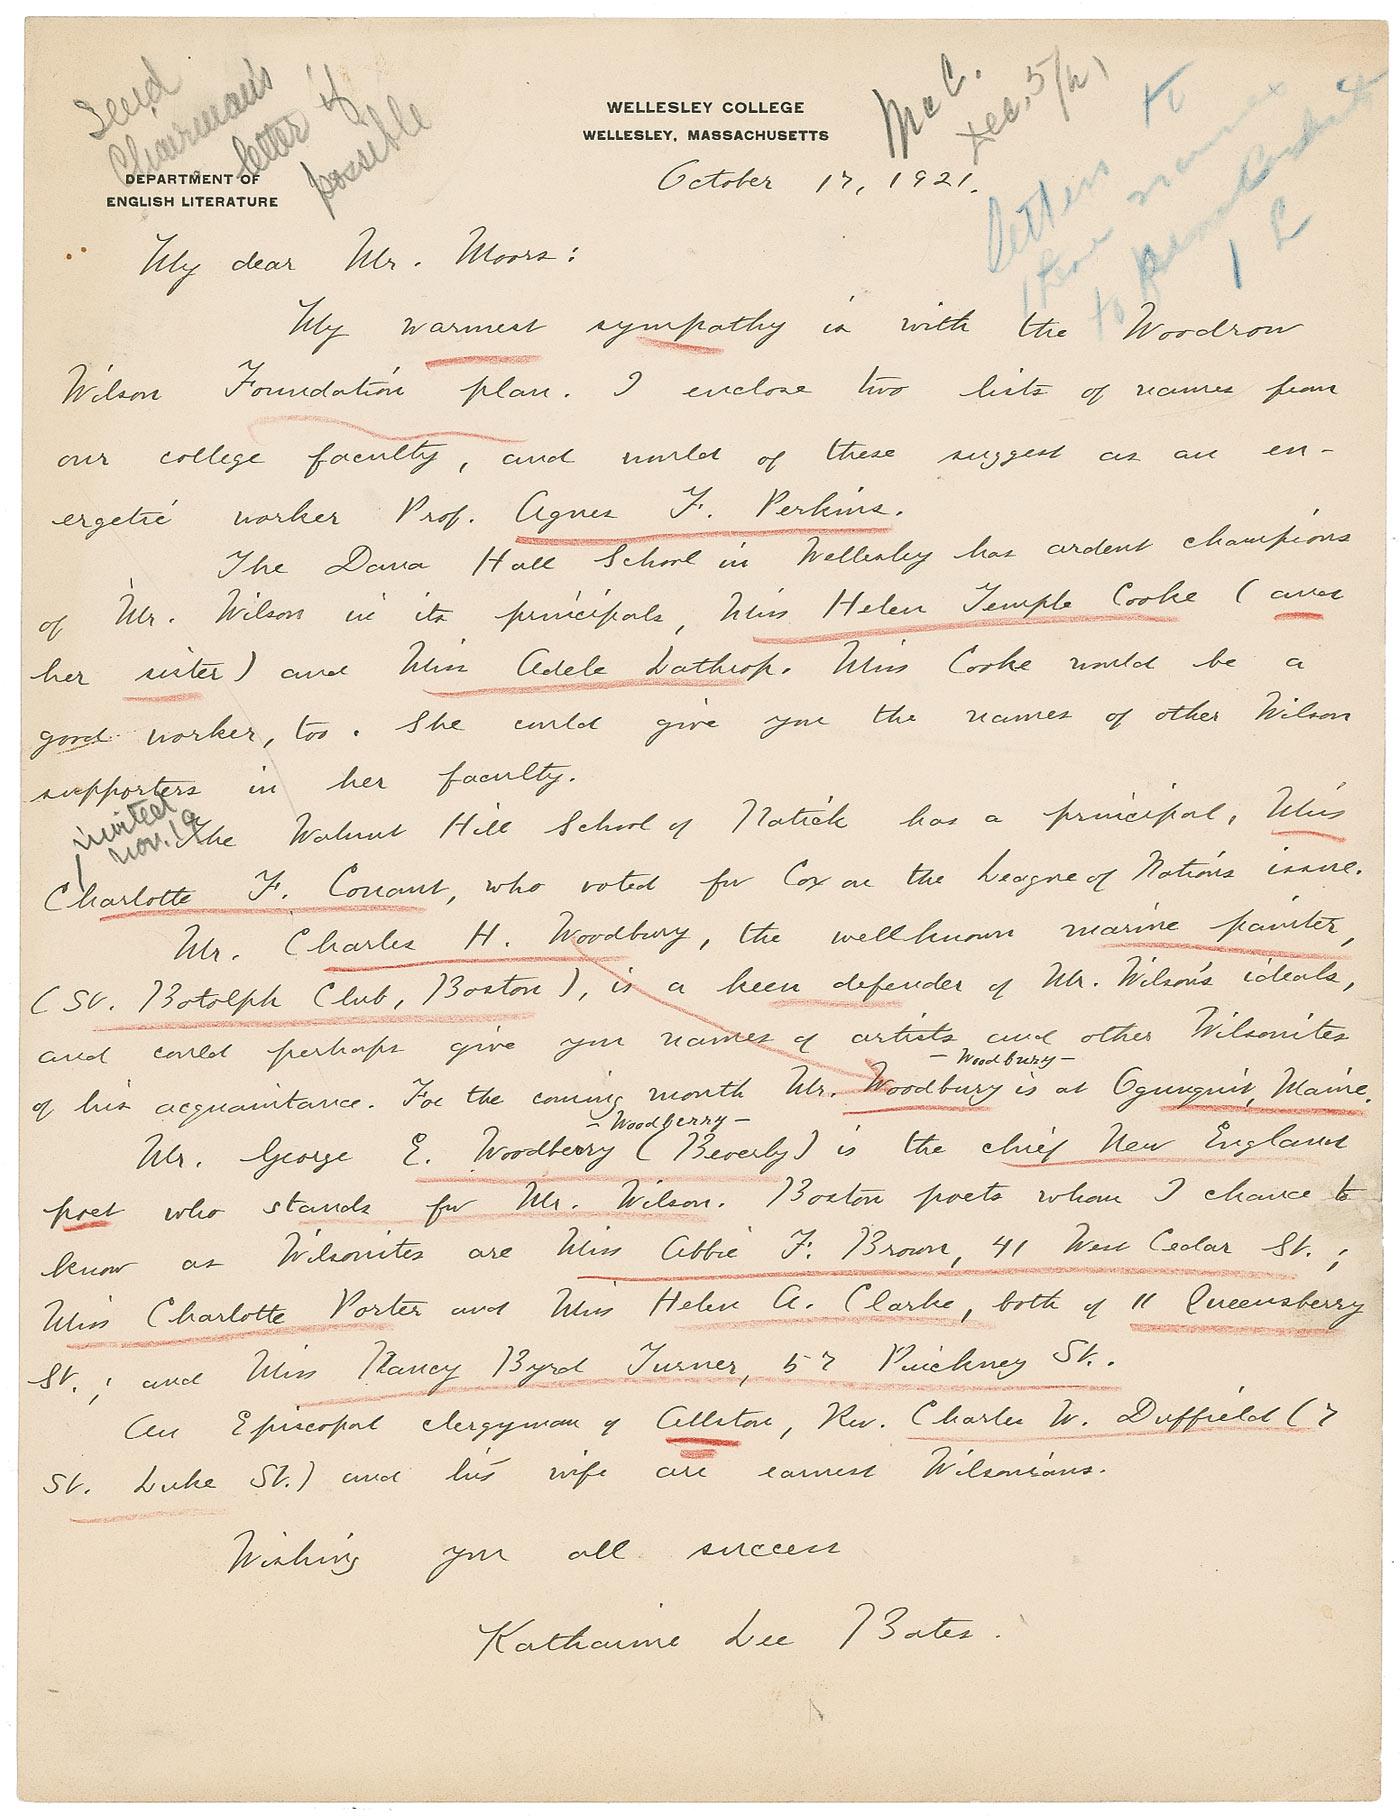 Send
Chairman's
letter if
possible
WELLESLEY COLLEGE
WELLESLEY, MASSACHUSETTS
McC.
Dec. 5/21
letters to
these names
to
1 L
DEPARTMENT OF
ENGLISH LITERATURE
October 17, 1921.
My dear Mr. Moors:
My warmest sympathy is with the Woodrow
Wilson Foundation plan. I enclose two lists of names from
our college faculty, and would of these suggest as an en-
ergetic worker Prof. Agnes F. Perkins.
The Dana Hall School in Wellesley has ardent champions
of Mr. Wilson in its principals, Miss Helen Temple Cooke (and
her sister) and Miss Adele Lathrop. Miss Cooke would be a
good worker, too. She could give you the names of other Wilson
supporters in her faculty.
invited
Nov. 19
The Walnut Hill School of Natick has a principal, Miss
Charlotte F. Conant, who voted for Cox on the League of Nations issue.
Mr. Charles H. Woodbury, the wellknown marine painter,
(St. Botolph Club, Boston), is a keen defender of Mr. Wilson's ideals,
and could perhaps give you names of artists and other Wilsonites
- Woodbury -
of his acquaintance. For the coming month Mr. Woodbury is at Ogunquit, Maine.
- Woodberry -
Mr. George E. Woodberry (Beverly) is the chief New England
poet who stands for Mr. Wilson. Boston poets whom I chance to
know as Wilsonites are Miss Abbie F. Brown, 41 West Cedar St.;
Miss Charlotte Porter and Miss Helen A. Clarke, both of 11 Queensberry
St.; and Miss Nancy Byrd Turner, 57 Pinckney St..
An Episcopal clergyman of Allston, Rev. Charles W. Duffield (7
St. Luke St.) and his wife are earnest Wilsonians.
Wishing you all success
Katharine Lee Bates.